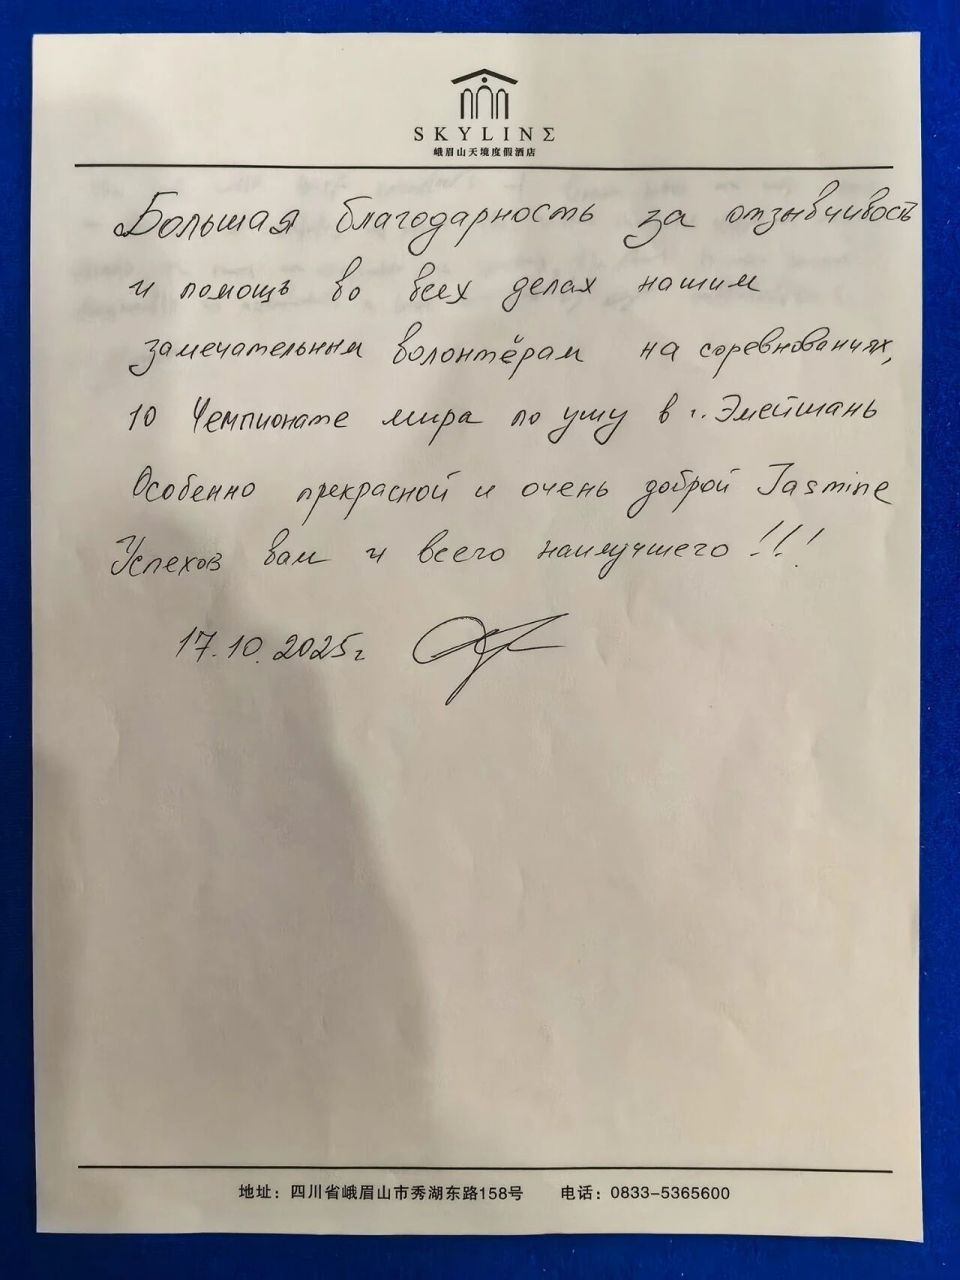 SKYLINΣ
峨眉山天境度假酒店
Большая благодарность за отзывчивость
и помощь во всех делах нашим
замечательным волонтёрам на соревнованиях,
10 Чемпионате мира по ушу в г. Эмейшань
Особенно прекрасной и очень доброй Jasmine
Успехов вам и всего наилучшего!!!
17.10.2025г
地址：四川省峨眉山市秀湖东路158号 电话：0833-5365600